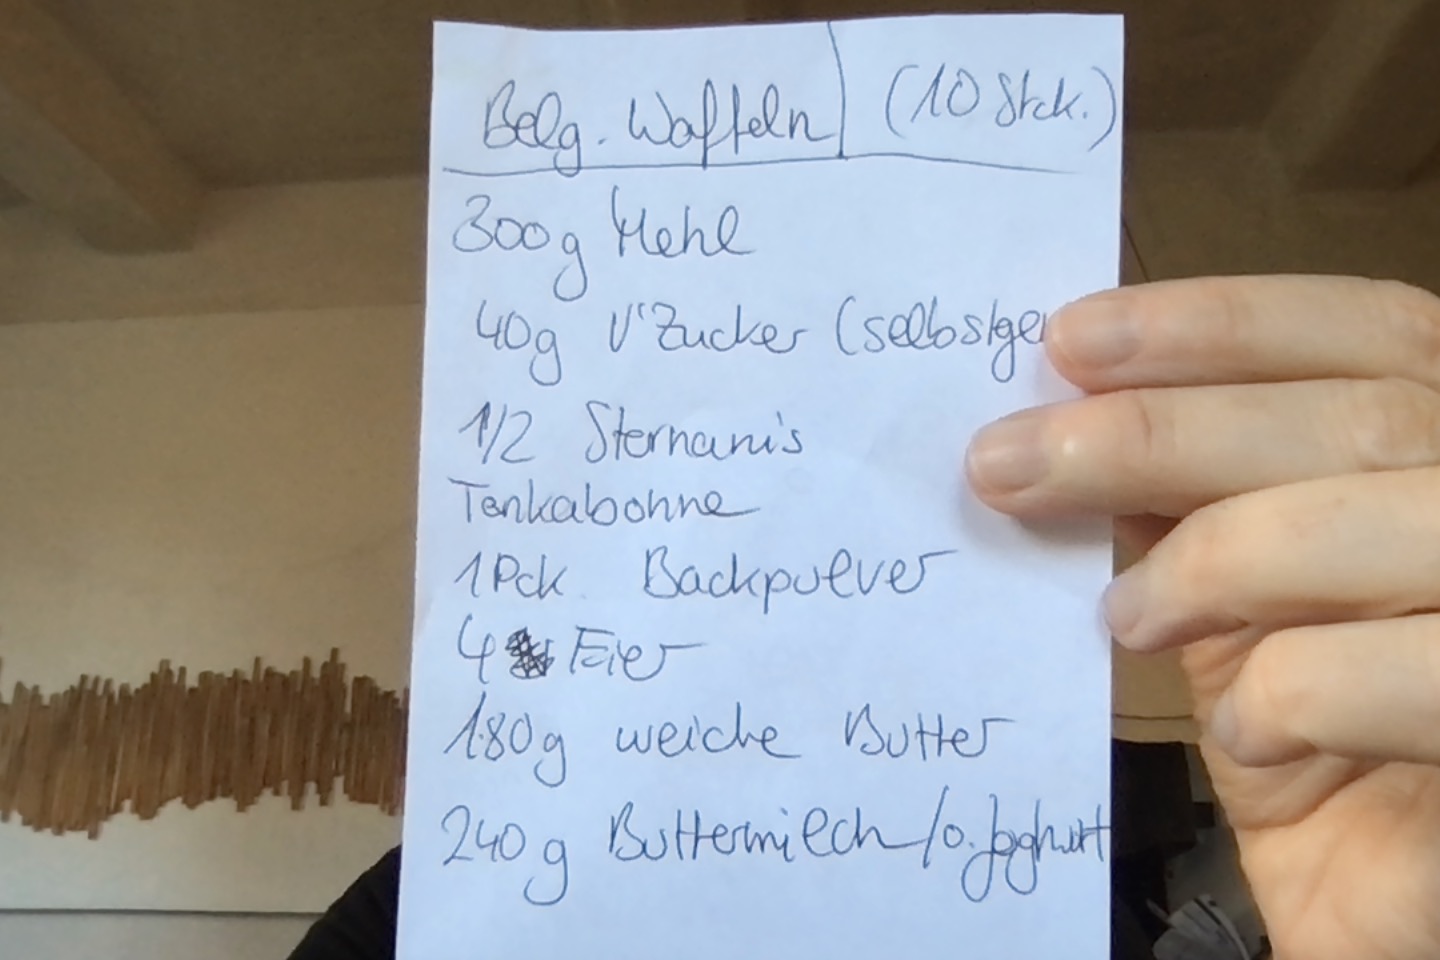 Belg. Waffeln (10 Stck.)
300g Mehl
40g V'Zucker (selbstge
1/2 Sternanis
Tonkabohne
1 Pck. Backpulver
4 Eier
180g weiche Butter
240g Buttermilch/o. Joghurt